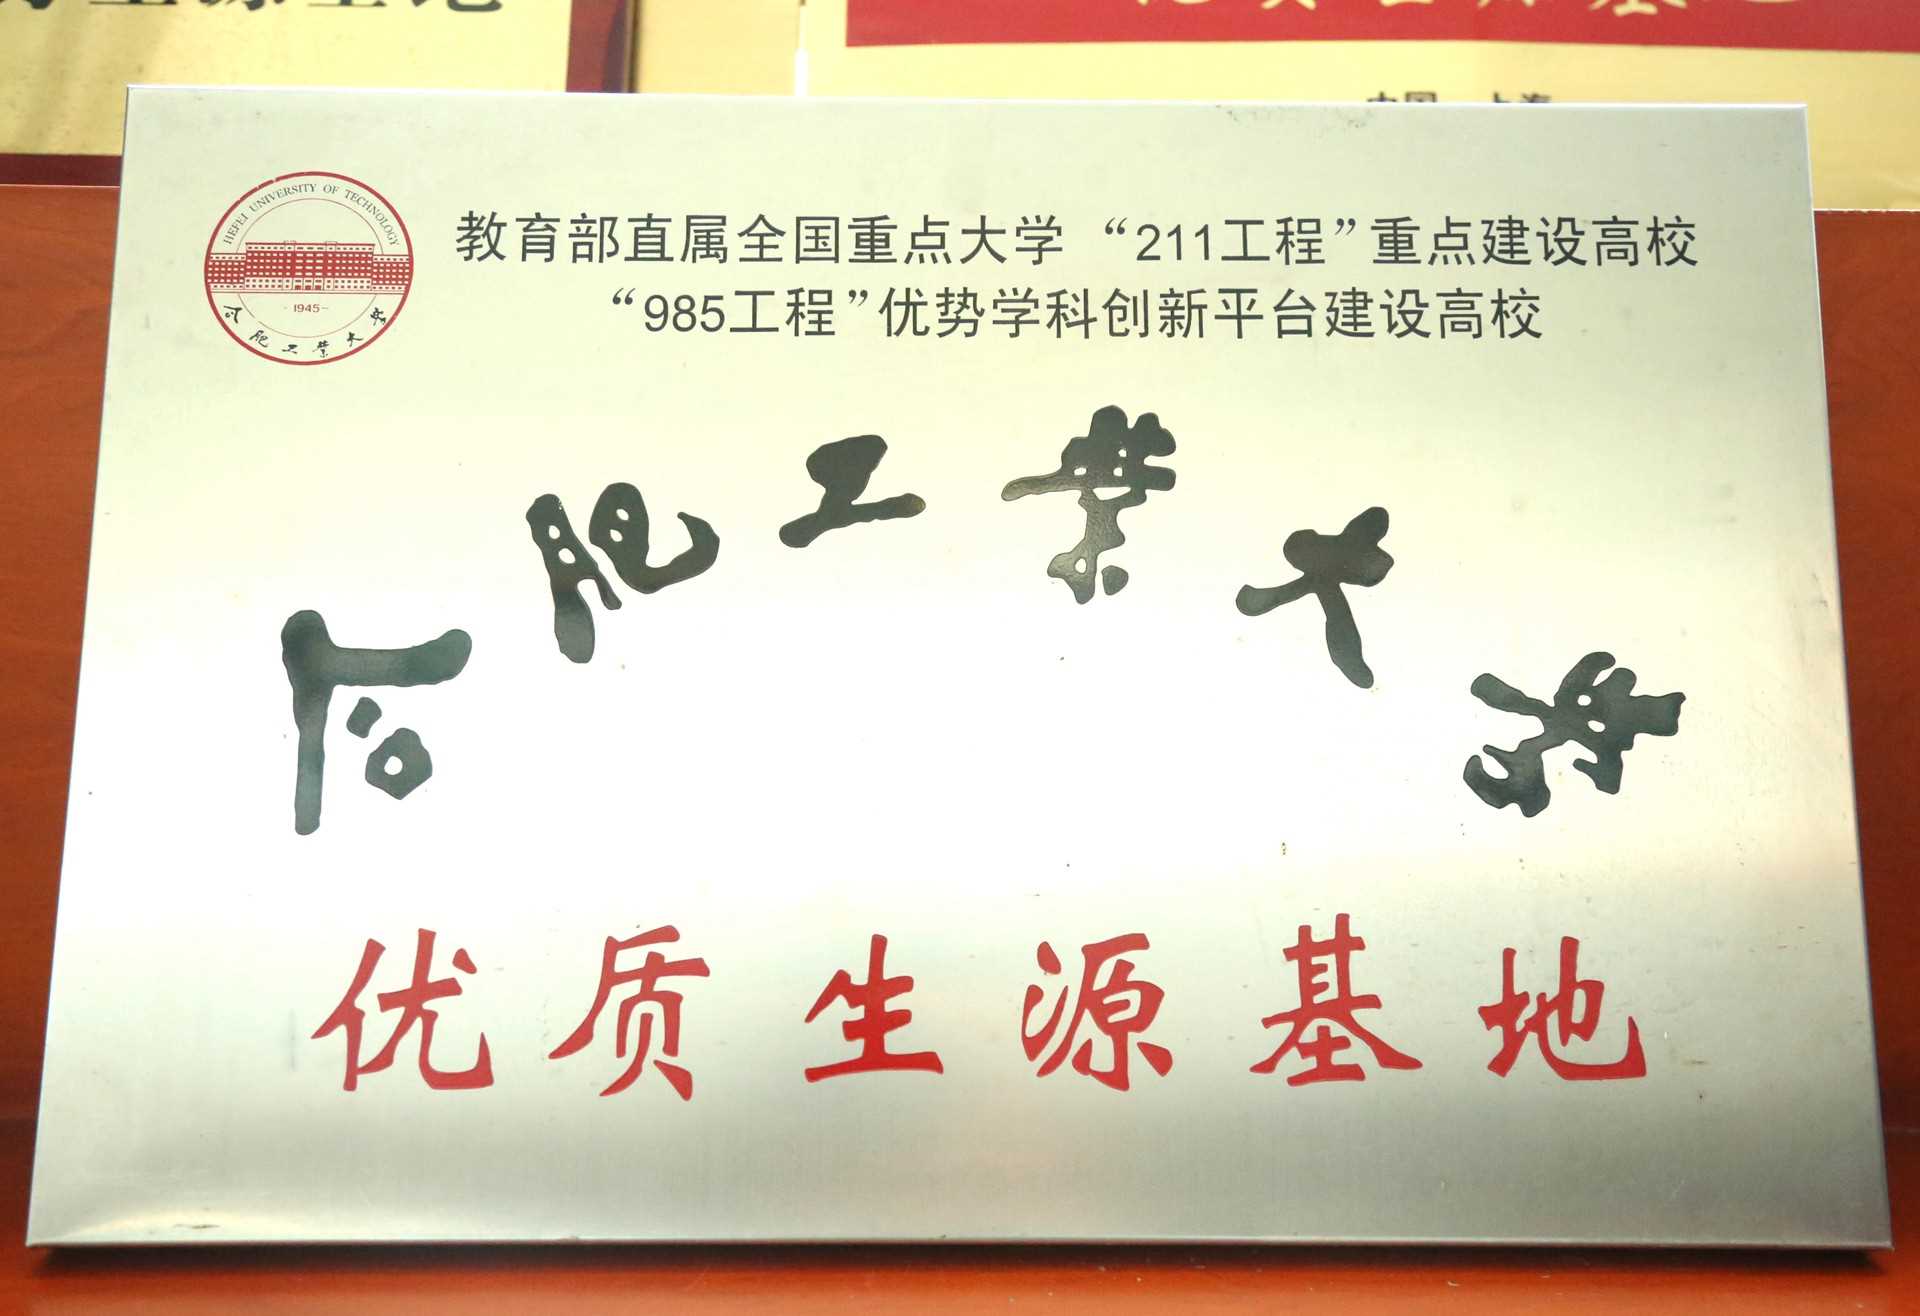 优质生源基地
中国 上海
HEFEI UNIVERSITY OF TECHNOLOGY
-1945-
合肥工业大学
教育部直属全国重点大学 “211工程”重点建设高校
“985工程”优势学科创新平台建设高校
合肥工业大学
优质生源基地